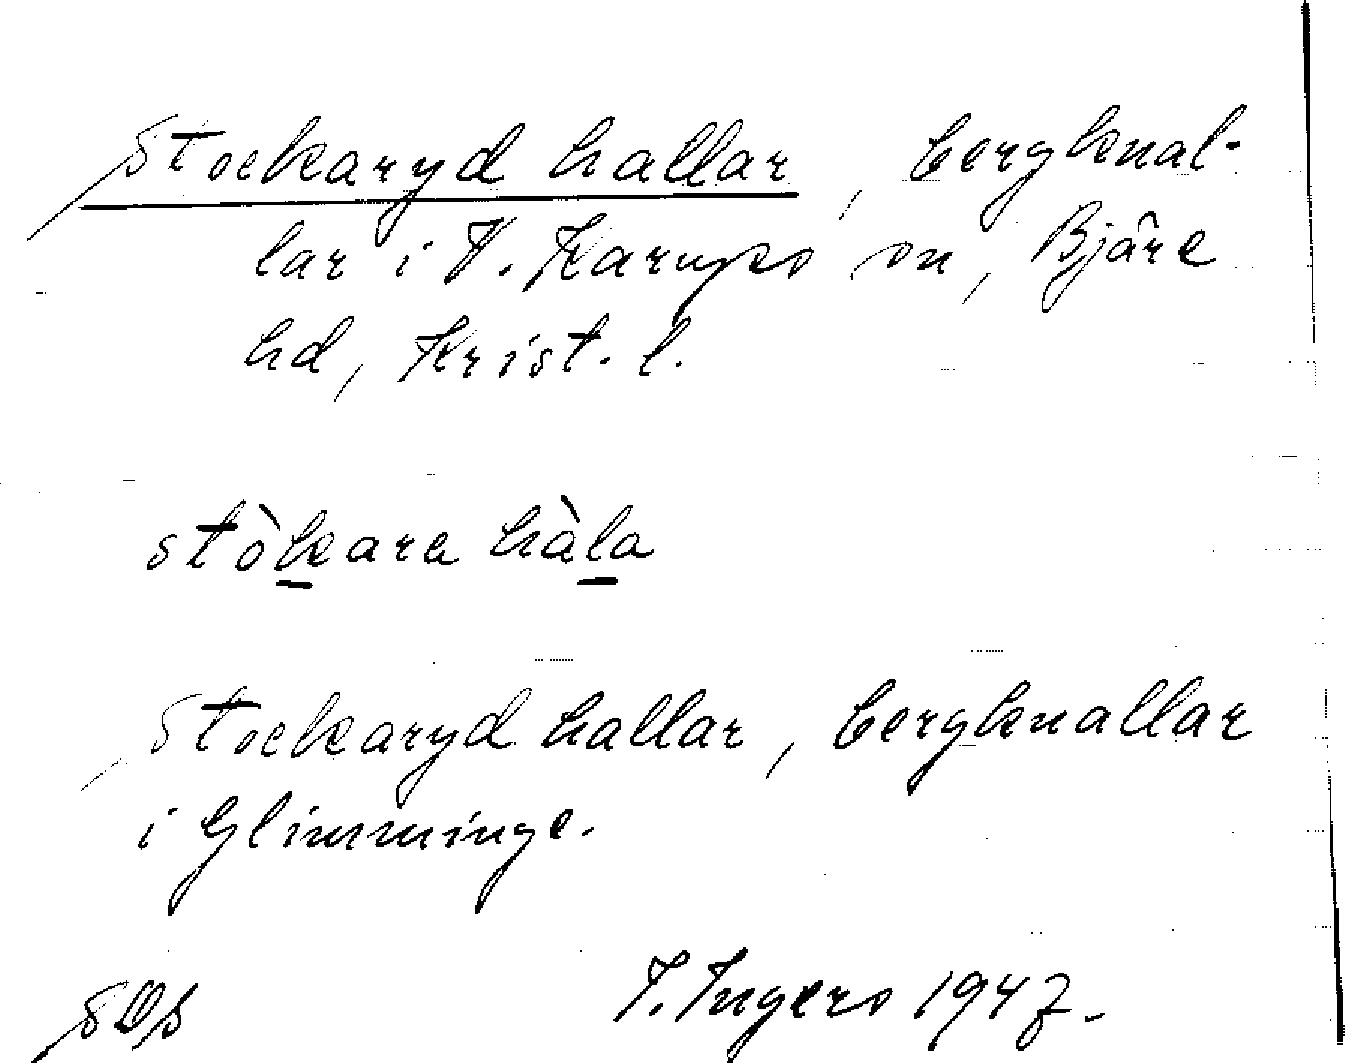 Stockaryd hallar, bergknal-
lar i V. Karups sn, Bjäre
hd, Krist. l.
stòkara hàla
Stockaryd hallar, bergknallar
i Glimminge.
SOS I. Ingers 1947.